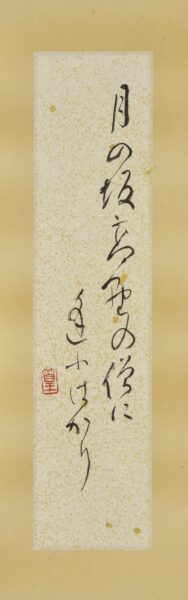 月の坂高野の僧に
逢ふはかり
篁